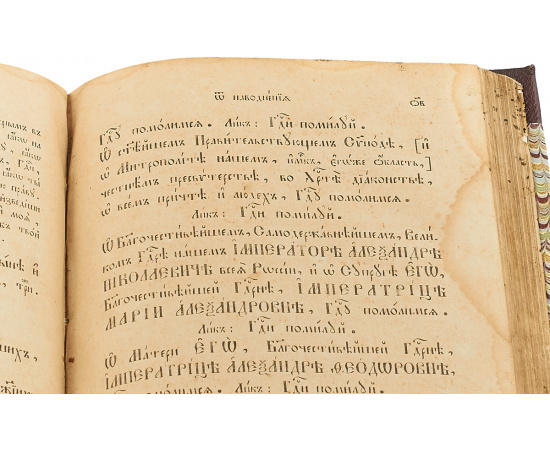 рымъ въ
ꙗ҆́кѡ на
ꙗ҆́кѡ
праву.
мой,
твой
и҆
три.
шихъ,
Ѿ наводне́нїѧ
Гдⷭ҇ꙋ помолимсѧ. Ли́къ: Гдⷭ҇и поми́лꙋй.
Ѡ ст҃ѣ́йшемъ Прави́тельствꙋющемъ Сѷно́дѣ, [и҆
ѡ Митрополі́тѣ на́шемъ, и҆́м҃къ, є҆гѡ́же ѻ҆́бласть,]
честнѣ́мъ пресвѷ́терствѣ, во Хрⷭ҇тѣ̀ дїа́конствѣ,
ѡ всѣ́мъ при́чтѣ и҆ лю́дехъ, Гдⷭ҇ꙋ помо́лимсѧ.
Ли́къ: Гдⷭ҇и поми́лꙋй.
Ѡ Бл҃гочести́вѣйшемъ, Самодержа́внѣйшемъ, Вели́-
комъ Гдⷭ҇рѣ на́шемъ І҆МПЕРА́ТОРѢ А҆ЛЕѮА́НДРѢ
НІКОЛА́ЕВИЧѢ всеѧ̀ Рѡссі́и, и҆ ѡ Сꙋпрꙋ́гѣ Є҆ГѠ̀,
Бл҃гочести́вѣйшей Гдⷭ҇рнѣ, І҆МПЕРАТРІ́ЦѢ
МАРІ́И А҆ЛЕѮА́НДРОВНѢ, Гдⷭ҇ꙋ помо́лимсѧ.
Ли́къ: Гдⷭ҇и поми́лꙋй.
Ѡ Ма́тери Є҆ГѠ̀, Бл҃гочести́вѣйшей Гдⷭ҇рнѣ,
І҆МПЕРАТРІ́ЦѢ А҆ЛЕѮА́НДРѢ ѲЕО́ДѠРОВНѢ,
помо́лимсѧ. Ли́къ: Гдⷭ҇и поми́лꙋй.